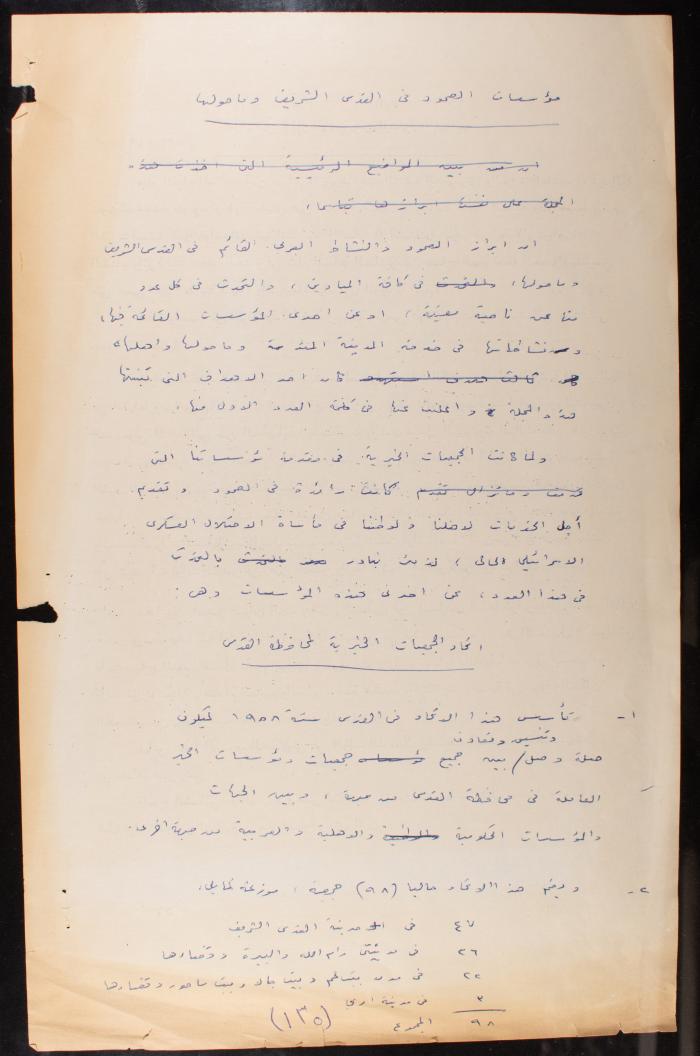 مؤسسات الصمود في القدس الشريف وما حولها
ان من بين المواضيع الرئيسية التي اخذت هذه
المجلة على نفسها ابرازها
ان ابراز الصمود والنشاط العربي القائم في القدس الشريف
وما حولها، في كافة الميادين، والتحدث في كل عدد
منها عن ناحية معينة، او عن احدى المؤسسات القائمة فيها،
ونشاطاتها في خدمة المدينة المقدسة وما حولها واهلها،
كان احد الاهداف التي تبنتها
هذه المجلة واعلنت عنها في كلمة العدد الاول منها.
ولما كانت الجمعيات الخيرية في مقدمة مؤسساتنا التي
قدمت وما تزال تقدم كانت رائدة في الصمود وتقديم
أجل الخدمات لاهلنا ولوطننا في مأساة الاحتلال العسكري
الاسرائيلي الحالي، لذلك نبادر بالحديث
في هذا العدد، عن احدى هذه المؤسسات وهي:
اتحاد الجمعيات الخيرية لمحافظة القدس
١- تأسس هذا الاتحاد في القدس سنة ١٩٥٨ ليكون
وتنسيق وتعاون
صلة وصل / بين جميع جمعيات ومؤسسات الخير
العاملة في محافظة القدس من جهة، وبين الجهات
والمؤسسات الحكومية والاهلية والعربية من جهة اخرى.
٢- ويضم هذا الاتحاد حاليا (٩٨) جمعية، موزعة كما يلي:
٤٧ في مدينة القدس الشريف
٢٦ في مدينتي رام الله والبيرة وقضاءها
٢٢ في مدن بيت لحم وبيت جالا وبيت ساحور وقضاءها
٣ في مدينة اريحا
٩٨ المجموع
(١٣٥)